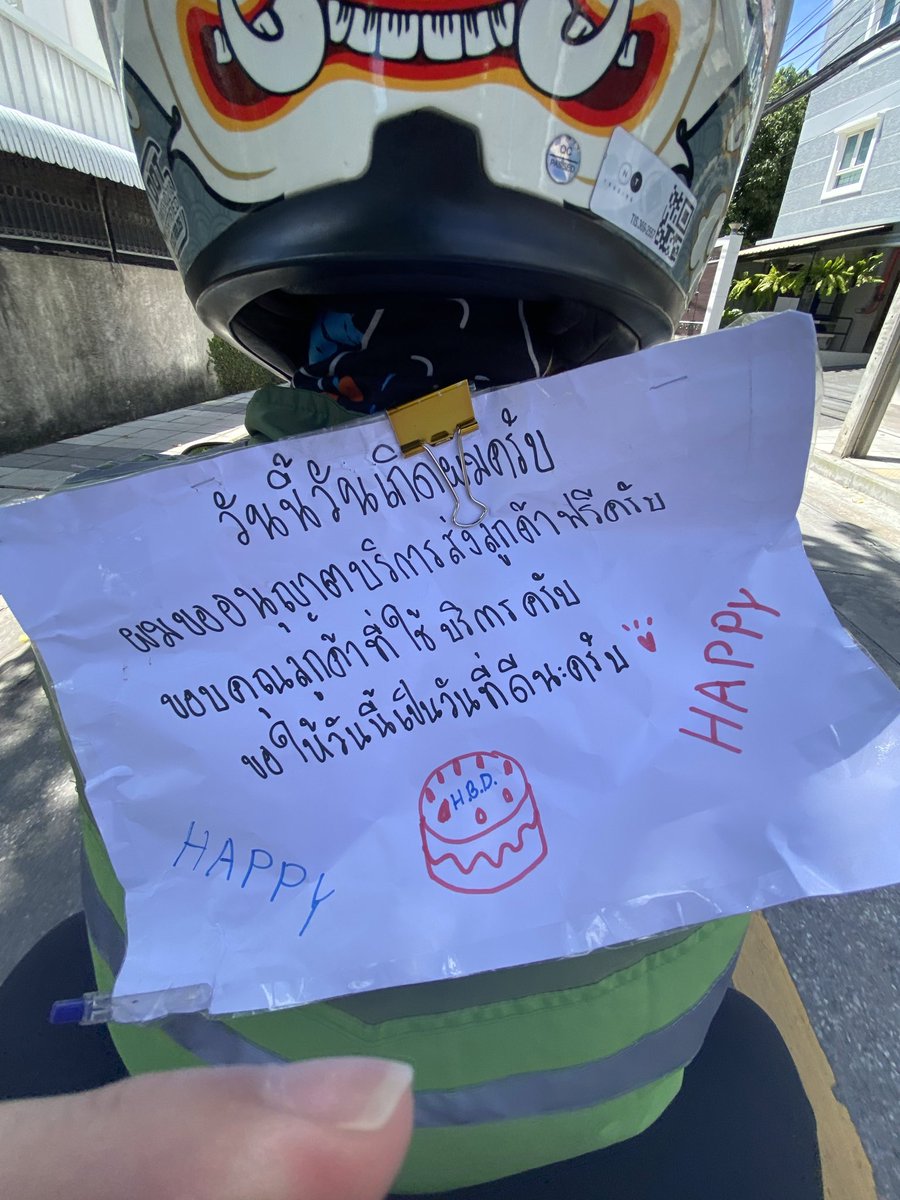 วันนี้วันเกิดผมครับ
ผมขออนุญาตบริการส่งลูกค้าฟรีครับ
ขอบคุณลูกค้าที่ใช้บริการครับ
ขอให้วันนี้เป็นวันที่ดีนะครับ
HAPPY
H.B.D.
HAPPY